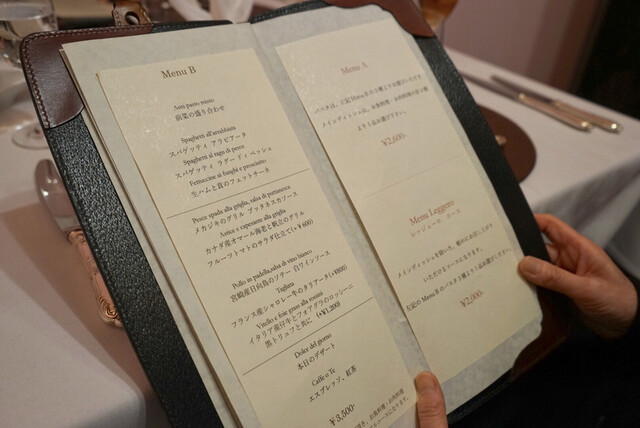 Menu B
Anti pasto misto
前菜の盛り合わせ
Spaghetti all'arrabbiata
スパゲッティ アラビアータ
Spaghetti al ragu di pesce
スパゲッティ ラグー ディ ペッシェ
Fettuccine ai funghi e prosciutto
生ハムと茸のフェットチーネ
Pesce spada alla griglia, salsa di puttanesca
メカジキのグリル プッタネスカソース
Astice e capesante alla griglia
カナダ産オマール海老と帆立のグリル
フルーツトマトのサラダ仕立て(+¥600)
Pollo in padella,salsa di vino bianco
宮崎産日向鳥のソテー 白ワインソース
Tagliata
フランス産シャロレー牛のタリアータ(+¥800)
Vitello e foie gras alla rossini
イタリア産仔牛とフォアグラのロッシーニ
黒トリュフと共に (+¥1,200)
Dolce del giorno
本日のデザート
Caffe o Te
エスプレッソ、紅茶
¥3,500-
Menu A
パスタは、左記Menu Bの3種よりお選びいただき
メインディッシュは、お魚料理・お肉料理の各2種
より1品お選び下さい。
¥2,600-
Menu Leggero
レッジェーロ コース
メインディッシュを除いた、軽めにお召し上がり
いただけるコースになります。
左記のMenu Bのパスタ3種より1品お選び下さい。
¥2,000-